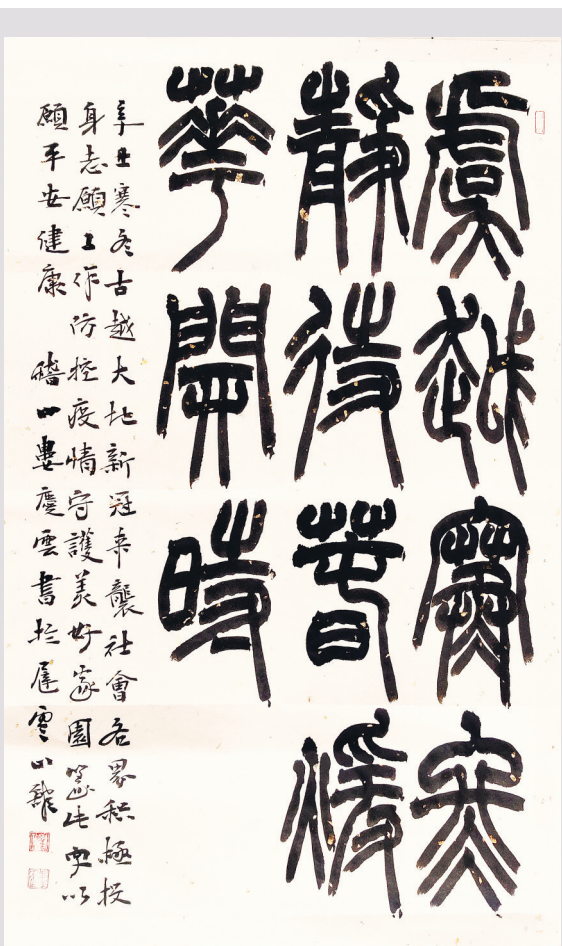 虞越寒
靜待春煖
華開時
辛丑寒冬古越大地新冠来襲社會各界积極投
身志願工作防控疫情守護美好家園此以
願平安健康 稽山婁慶雲書於雲小